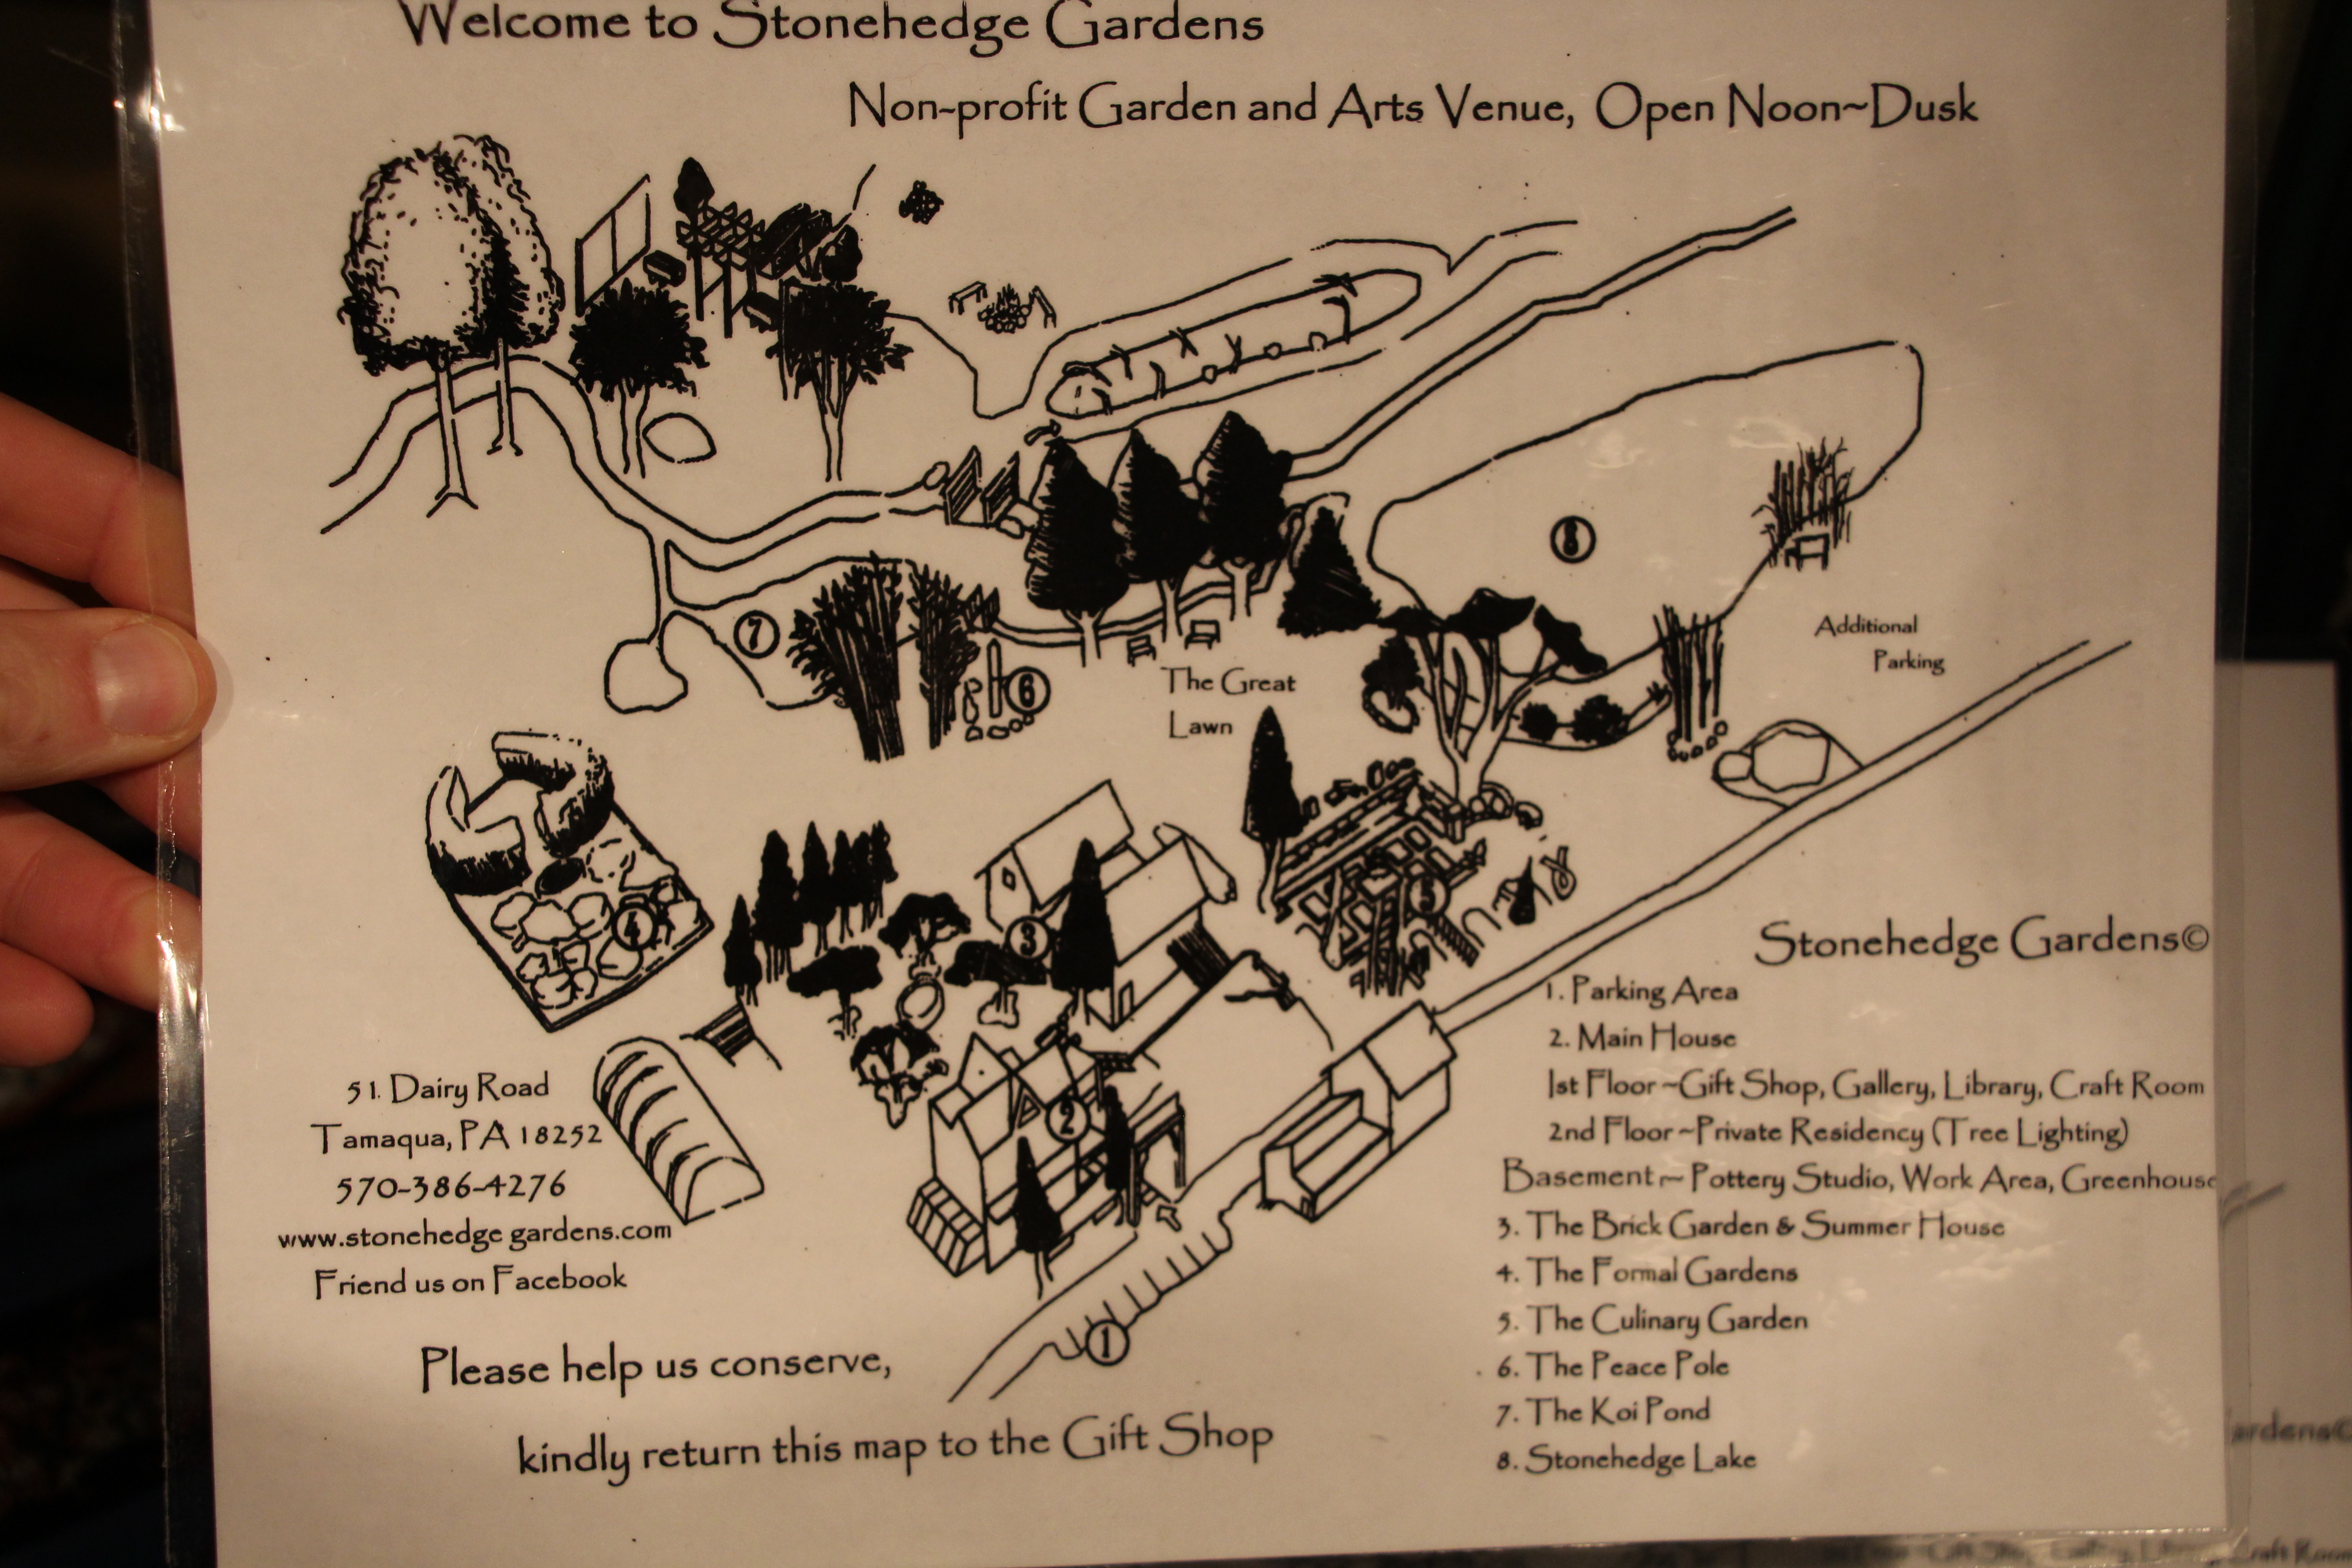 Welcome to Stonehedge Gardens
Non-profit Garden and Arts Venue, Open Noon~Dusk
8
7
6
The Great
Lawn
Additional
Parking
5
4
3
2
1
51. Dairy Road
Tamaqua, PA 18252
570-386-4276
www.stonehedge gardens.com
Friend us on Facebook
Please help us conserve,
kindly return this map to the Gift Shop
Stonehedge Gardens©
1. Parking Area
2. Main House
1st Floor ~Gift Shop, Gallery, Library, Craft Room
2nd Floor ~Private Residency (Tree Lighting)
Basement ~ Pottery Studio, Work Area, Greenhouse
3. The Brick Garden & Summer House
4. The Formal Gardens
5. The Culinary Garden
6. The Peace Pole
7. The Koi Pond
8. Stonehedge Lake
ardens©